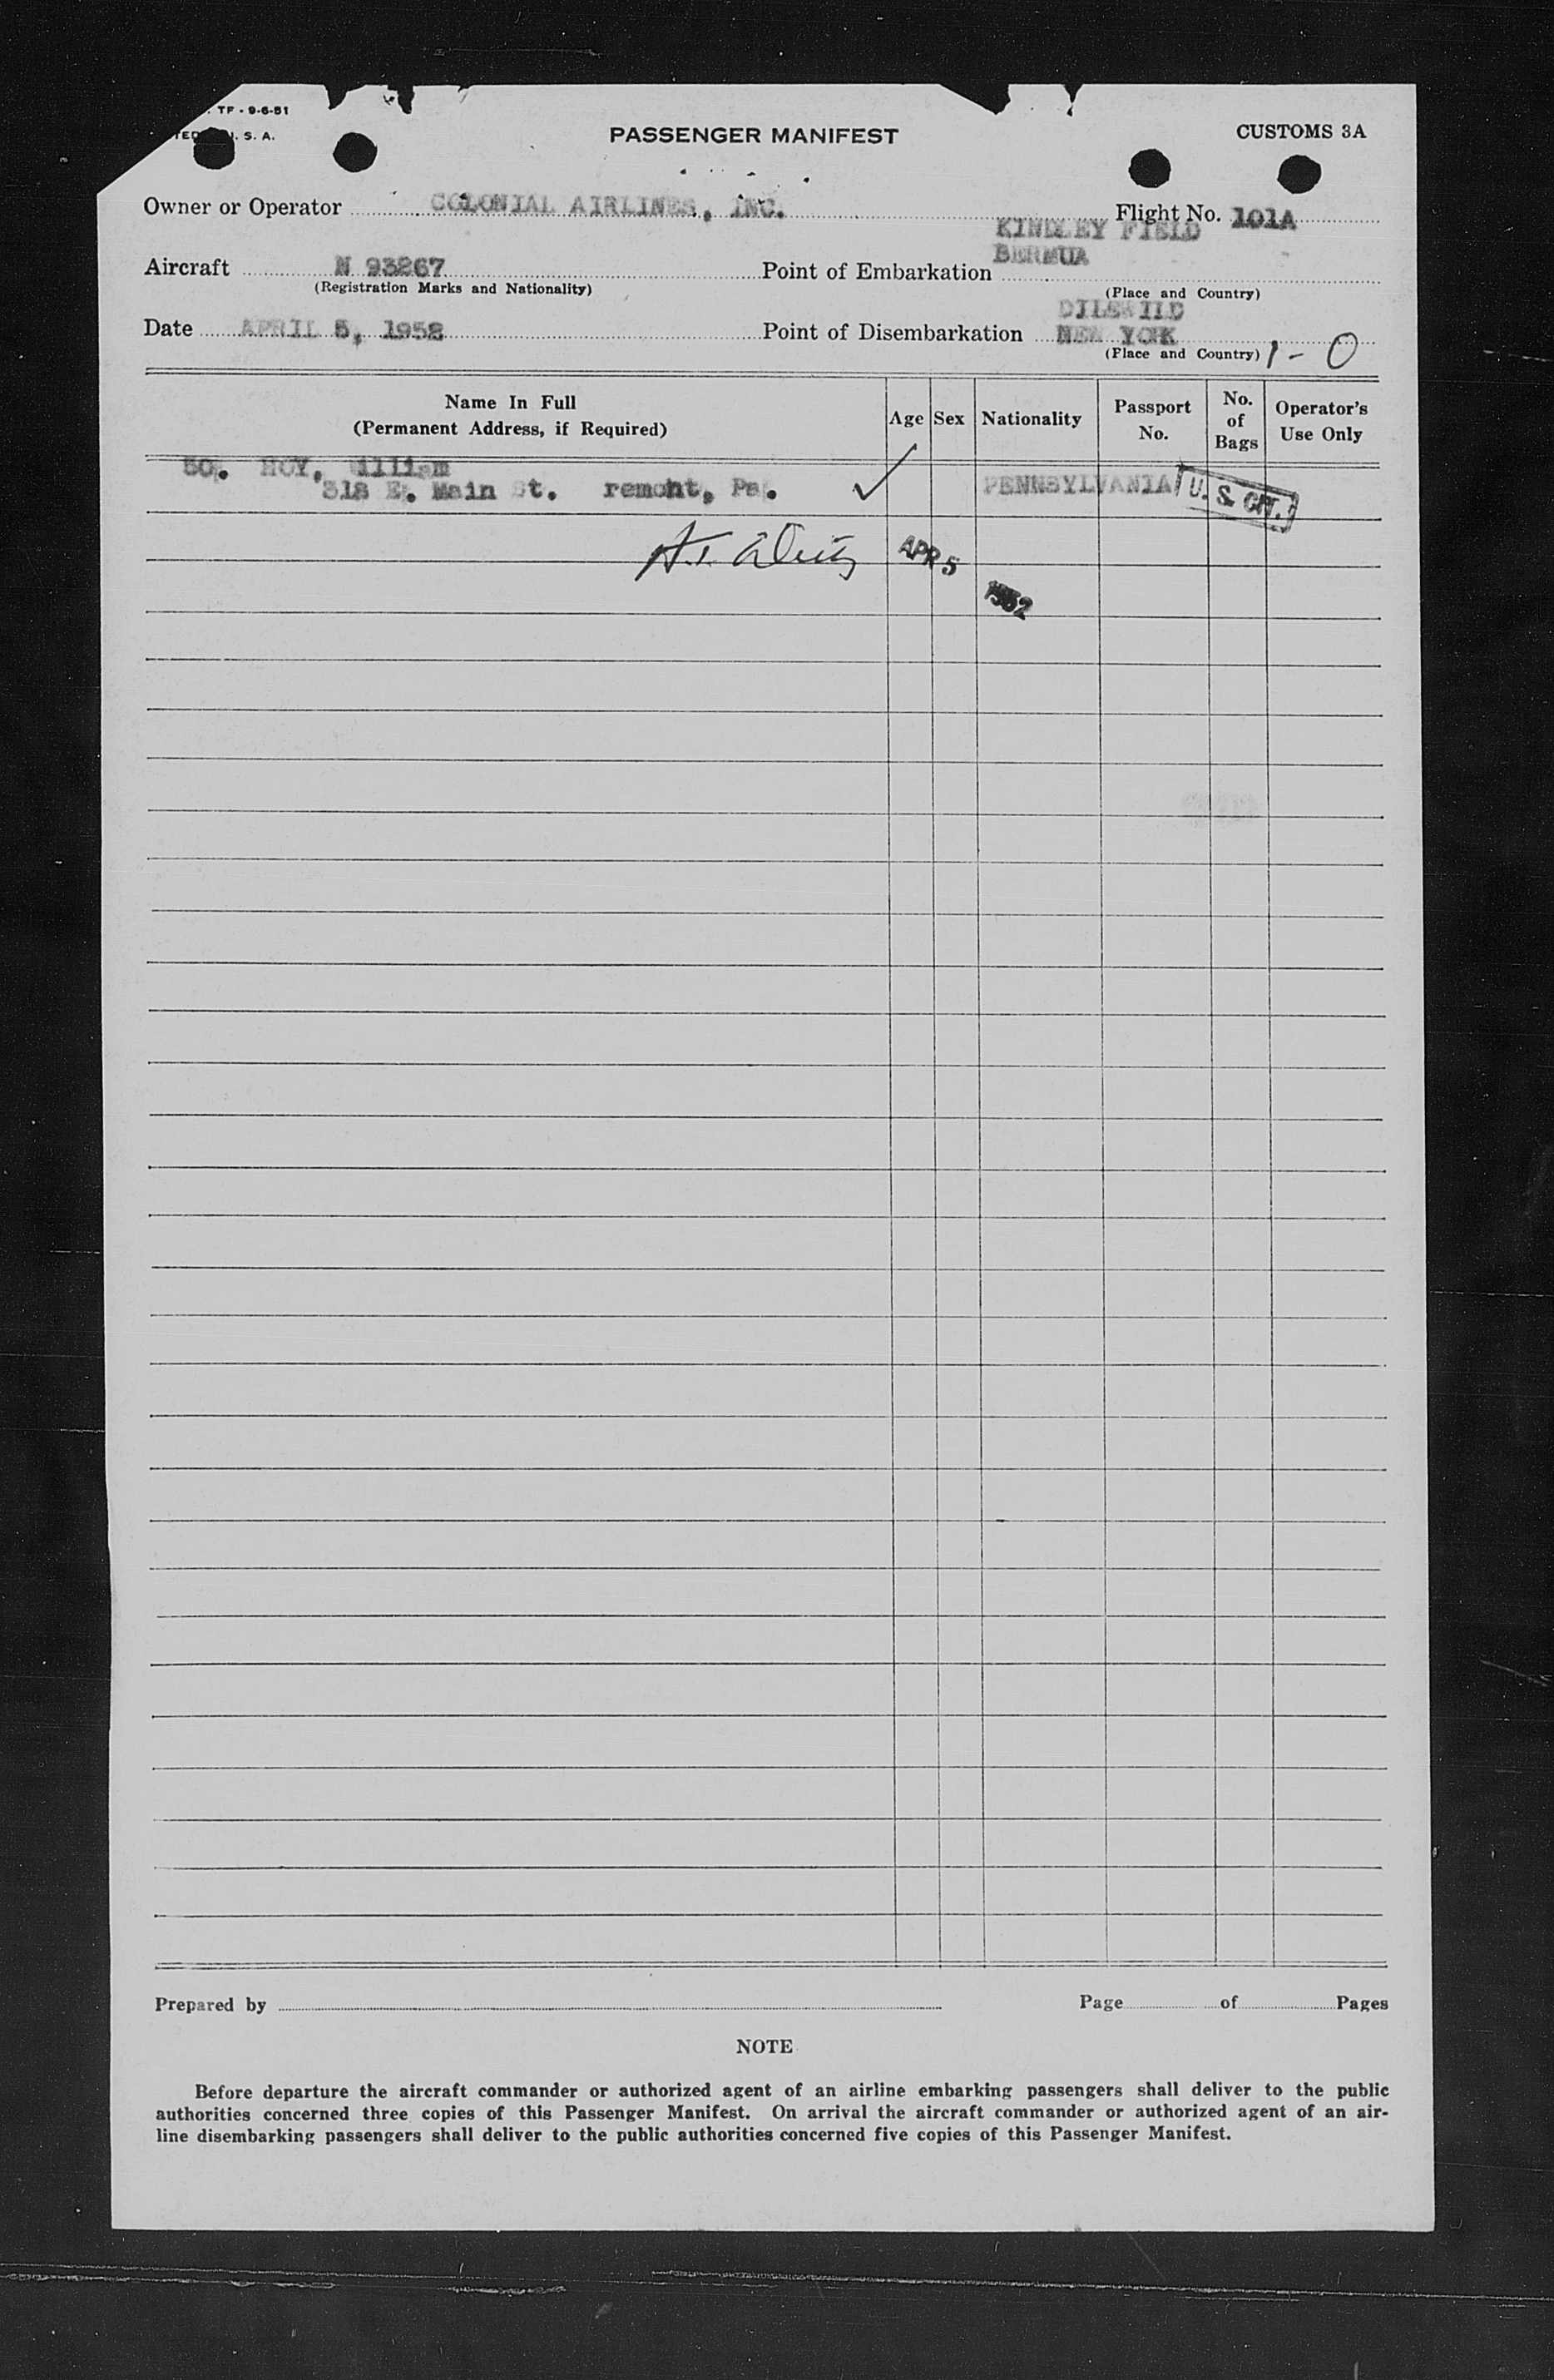 TF - 9-6-51
U. S. A.
PASSENGER MANIFEST
CUSTOMS 3A
Owner or Operator COLONIAL AIRLINES, INC. Flight No. 101A
KINDLEY FIELD
Aircraft N 93267 Point of Embarkation BERMUA
(Registration Marks and Nationality) (Place and Country)
Date APRIL 5, 1952 Point of Disembarkation NEW YORK
(Place and Country) 1 - 0
Name In Full
(Permanent Address, if Required)
Age
Sex
Nationality
Passport
No.
No.
of
Bags
Operator's
Use Only
50. HOY, illiam
318 E. Main St. remont, Pa. ✓ PENNSYLVANIA U. S. CIT.
APR 5
1952
Prepared by Page of Pages
NOTE
Before departure the aircraft commander or authorized agent of an airline embarking passengers shall deliver to the public
authorities concerned three copies of this Passenger Manifest. On arrival the aircraft commander or authorized agent of an air-
line disembarking passengers shall deliver to the public authorities concerned five copies of this Passenger Manifest.